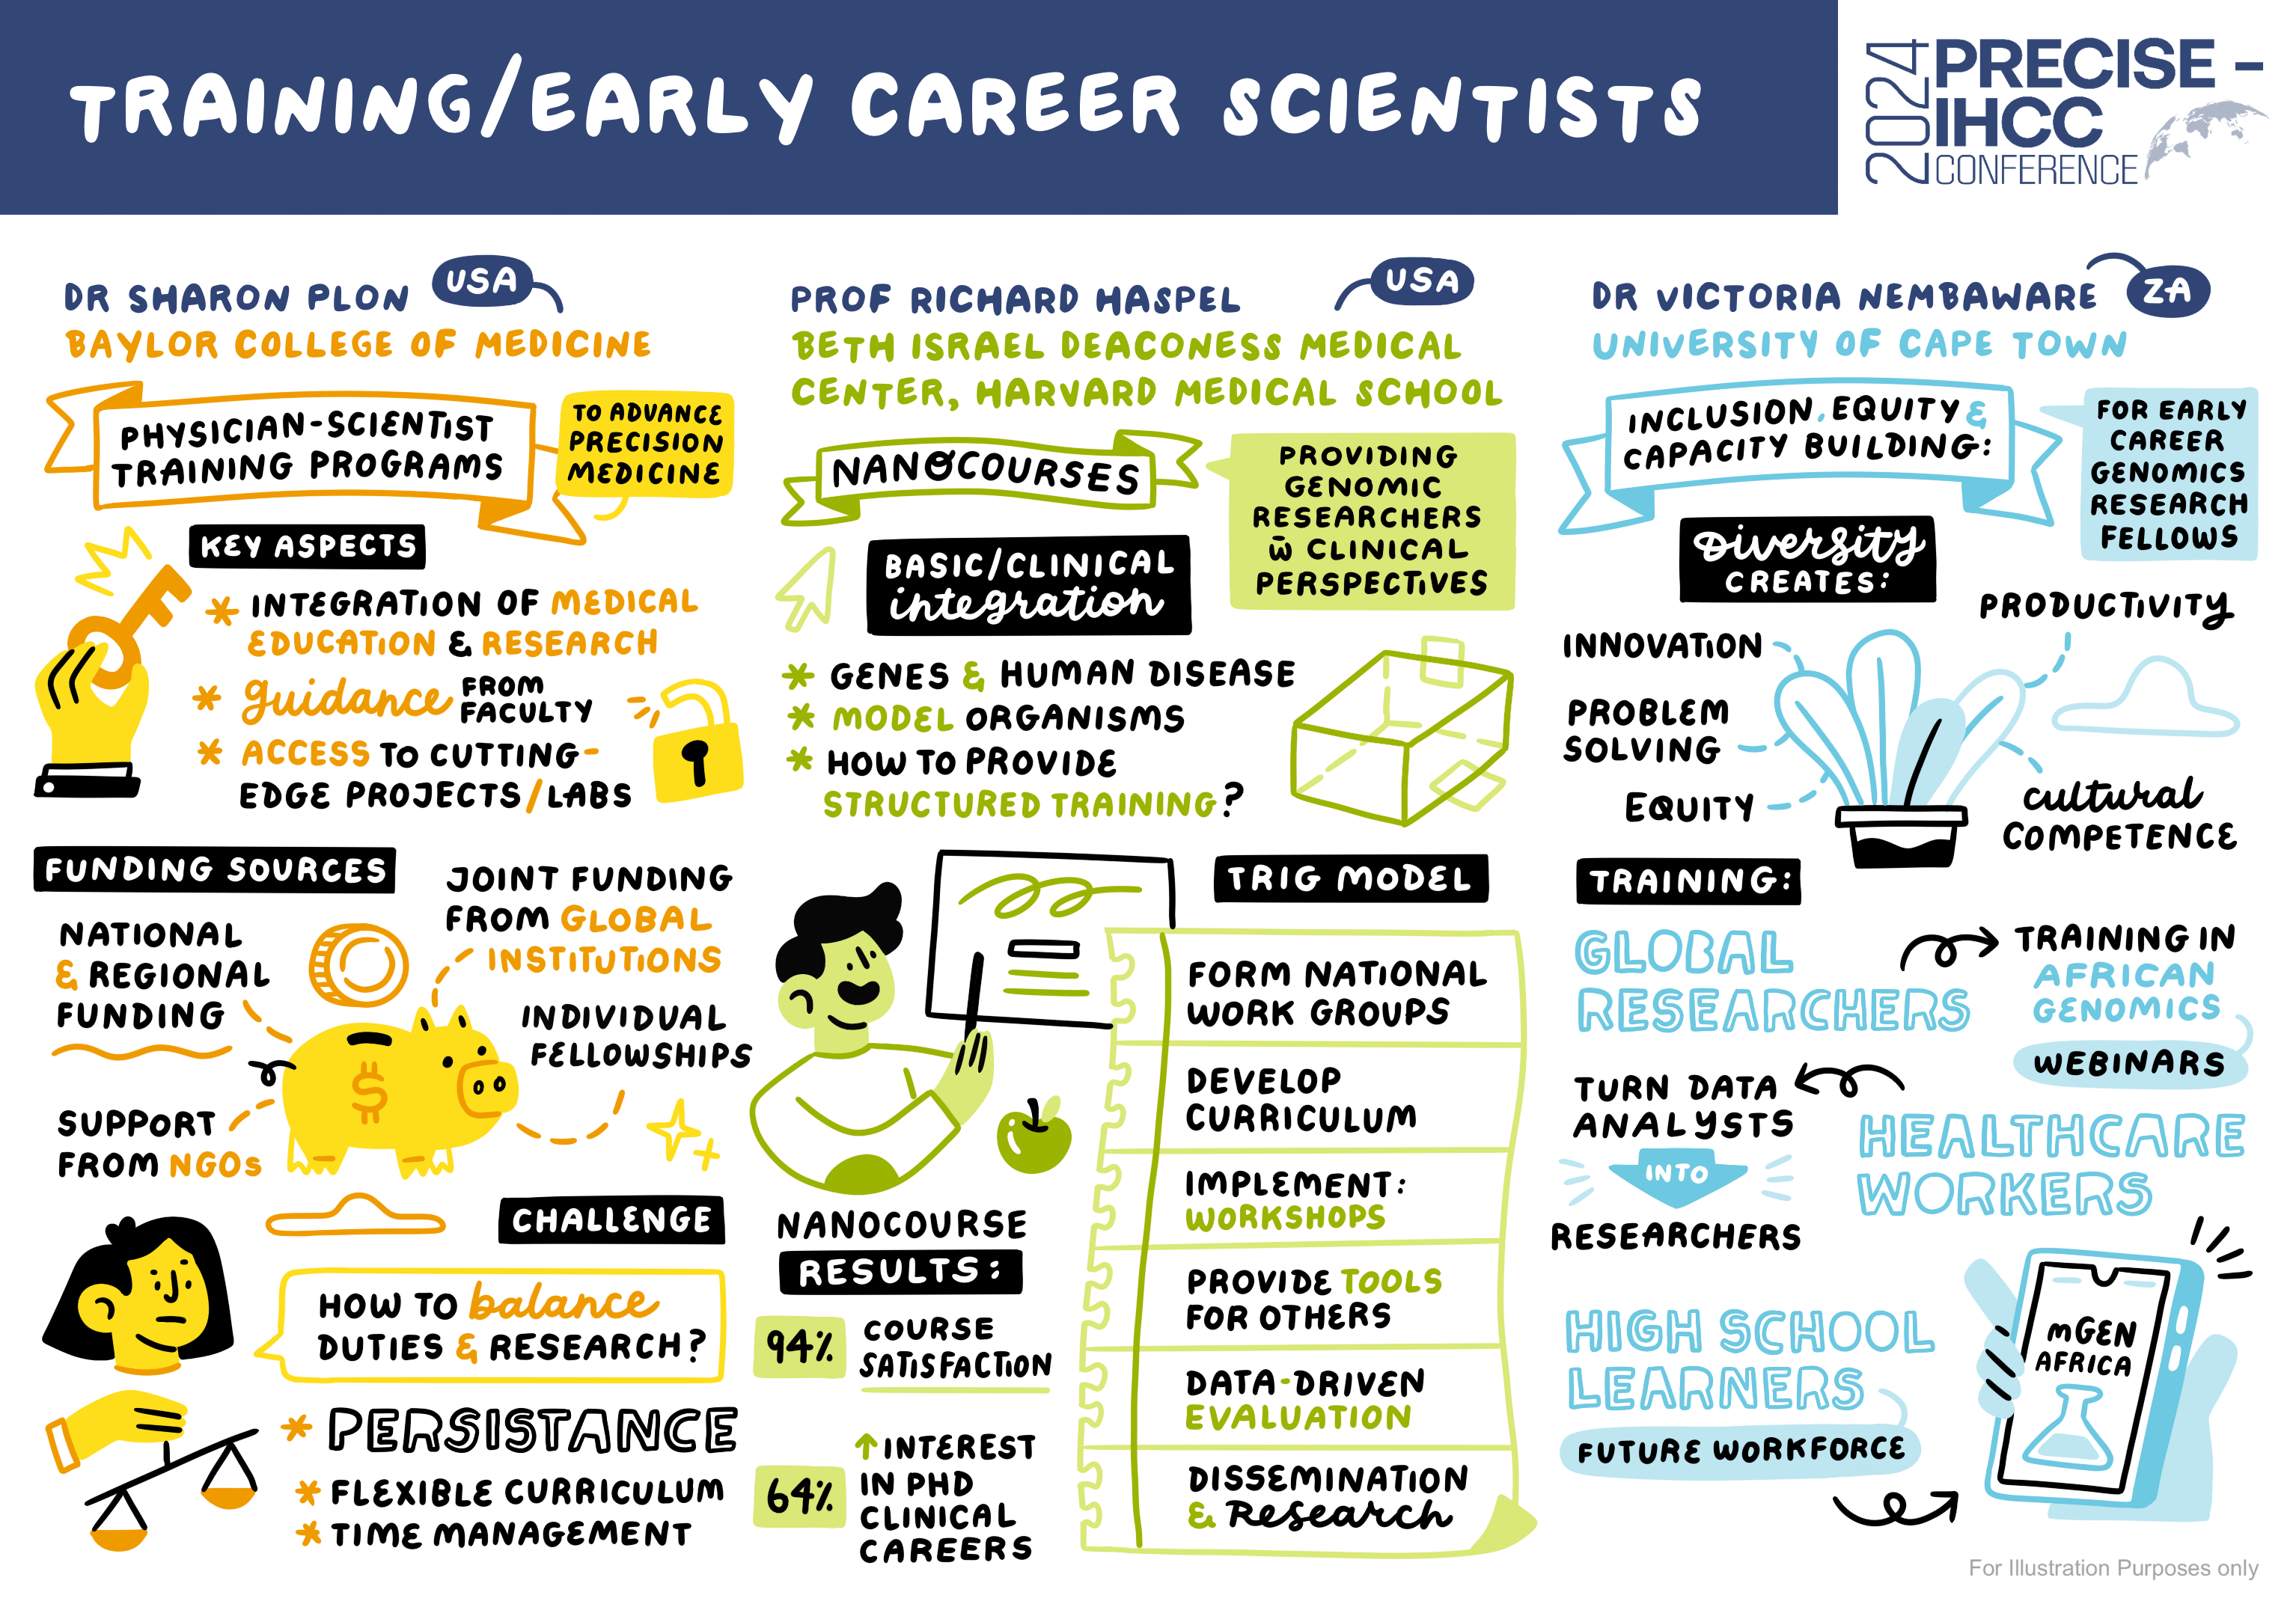 TRAINING/EARLY CAREER SCIENTISTS
2024
PRECISE -
IHCC
CONFERENCE
DR SHARON PLON
USA
BAYLOR COLLEGE OF MEDICINE
PHYSICIAN-SCIENTIST
TRAINING PROGRAMS
TO ADVANCE
PRECISION
MEDICINE
KEY ASPECTS
* INTEGRATION OF MEDICAL
EDUCATION & RESEARCH
* guidance FROM
FACULTY
* ACCESS TO CUTTING-
EDGE PROJECTS/LABS
FUNDING SOURCES
NATIONAL
& REGIONAL
FUNDING
JOINT FUNDING
FROM GLOBAL
INSTITUTIONS
INDIVIDUAL
FELLOWSHIPS
SUPPORT
FROM NGOs
$
CHALLENGE
HOW TO balance
DUTIES & RESEARCH?
* PERSISTANCE
* FLEXIBLE CURRICULUM
* TIME MANAGEMENT
PROF RICHARD HASPEL
USA
BETH ISRAEL DEACONESS MEDICAL
CENTER, HARVARD MEDICAL SCHOOL
NANOCOURSES
PROVIDING
GENOMIC
RESEARCHERS
w̄ CLINICAL
PERSPECTIVES
BASIC/CLINICAL
integration
* GENES & HUMAN DISEASE
* MODEL ORGANISMS
* HOW TO PROVIDE
STRUCTURED TRAINING?
TRIG MODEL
FORM NATIONAL
WORK GROUPS
DEVELOP
CURRICULUM
IMPLEMENT:
WORKSHOPS
PROVIDE TOOLS
FOR OTHERS
DATA-DRIVEN
EVALUATION
DISSEMINATION
& Research
NANOCOURSE
RESULTS:
94% COURSE
SATISFACTION
64% ↑ INTEREST
IN PHD
CLINICAL
CAREERS
DR VICTORIA NEMBAWARE
ZA
UNIVERSITY OF CAPE TOWN
INCLUSION, EQUITY &
CAPACITY BUILDING:
FOR EARLY
CAREER
GENOMICS
RESEARCH
FELLOWS
Diversity
CREATES:
INNOVATION
PRODUCTIVITY
PROBLEM
SOLVING
EQUITY
cultural
COMPETENCE
TRAINING:
GLOBAL
RESEARCHERS
TRAINING IN
AFRICAN
GENOMICS
WEBINARS
HEALTHCARE
WORKERS
TURN DATA
ANALYSTS
INTO
RESEARCHERS
HIGH SCHOOL
LEARNERS
FUTURE WORKFORCE
mGEN
AFRICA
For Illustration Purposes only